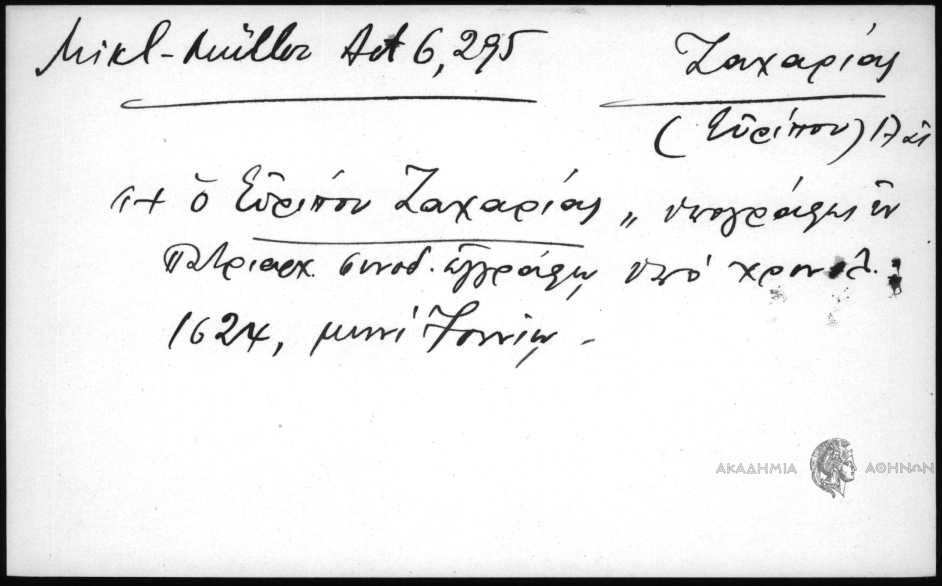 Mikl-Müller Act 6, 295
Ζαχαρίας
(Εὐρίπου) 17 αι
"+ ὁ Εὐρίπου Ζαχαρίας" ὑπογράφει ἐν
Πατριαρχ. συνοδ. ἐγγράφῳ, ὑπό χρονολ. :
1624, μηνί Ἰουνίῳ.
ΑΚΑΔΗΜΙΑ ΑΘΗΝΩΝ